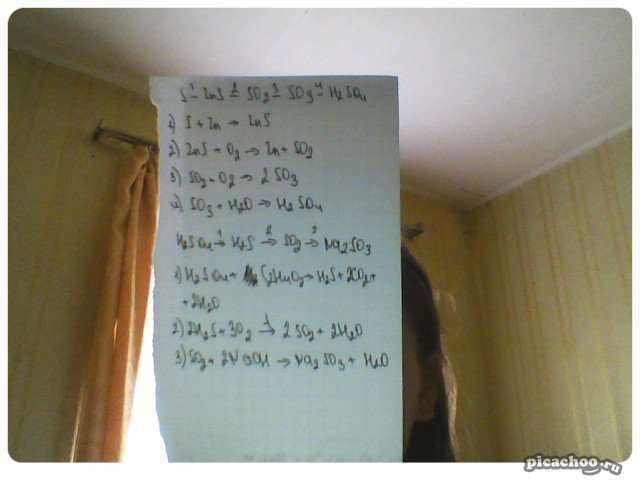 S ¹– ZnS ²= SO2 ³= SO3 ⁴– H2SO4
1) S + Zn → ZnS
2) ZnS + O2 → Zn + SO2
3) SO2 + O2 → 2 SO3
4) SO3 + H2O → H2SO4
H2SO4 ¹→ H2S ²→ SO2 ³→ Na2SO3
1) H2SO4 + → H2S + 2CO2 +
+ 2H2O
2) 2H2S + 3O2 → 2 SO2 + 2H2O
3) SO2 + 2NaOH → Na2SO3 + H2O
picachoo.ru